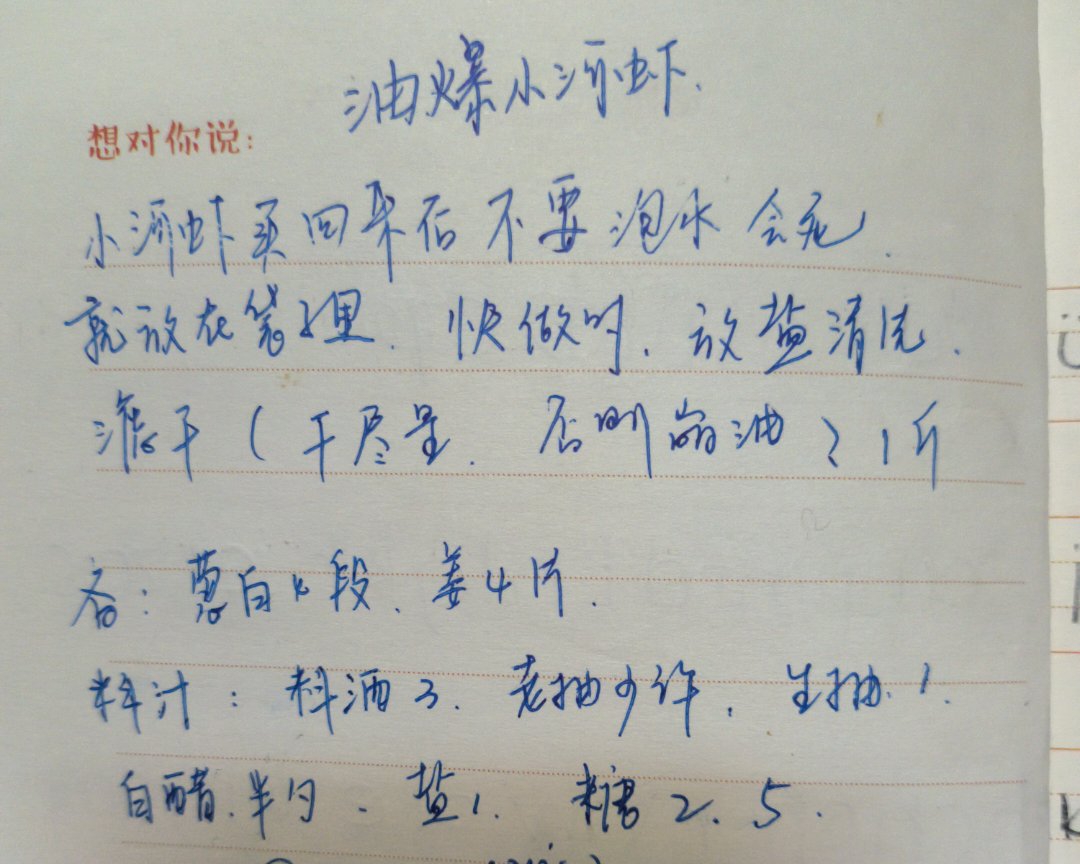 油爆小河虾.
想对你说:
小河虾买回来后不要泡水会死.
就放在袋子里. 快做时. 放盐清洗.
沥干(干尽量. 否则崩油)1斤
备: 葱白 段. 姜4片.
料汁: 料酒3. 老抽少许. 生抽.1.
白醋.半勺、盐1. 糖2.5.